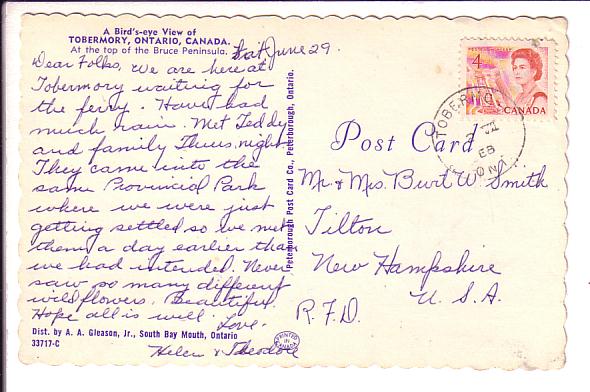 A Bird's-eye View of
TOBERMORY, ONTARIO, CANADA.
At the top of the Bruce Peninsula.
Sat June 29.
Dear Folks, We are here at
Tobermory waiting for
the ferry. Have had
much rain. Met Teddy
and family Thurs. night
They came into the
same Provincial Park
where we were just
getting settled so we met
them a day earlier than
we had intended. Never
saw so many different
wildflowers. Beautiful.
Hope all is well.
Love.
Helen & Theodore
Dist. by A. A. Gleason, Jr., South Bay Mouth, Ontario
33717-C
Peterborough Post Card Co., Peterborough, Ontario.
PRINTED
IN
CANADA
4
CANADA
TOBERMO
VI
EB
ONT
Post Card
Mr. & Mrs. Burt W. Smith
Tilton
New Hampshire
R.F.D. U.S.A.